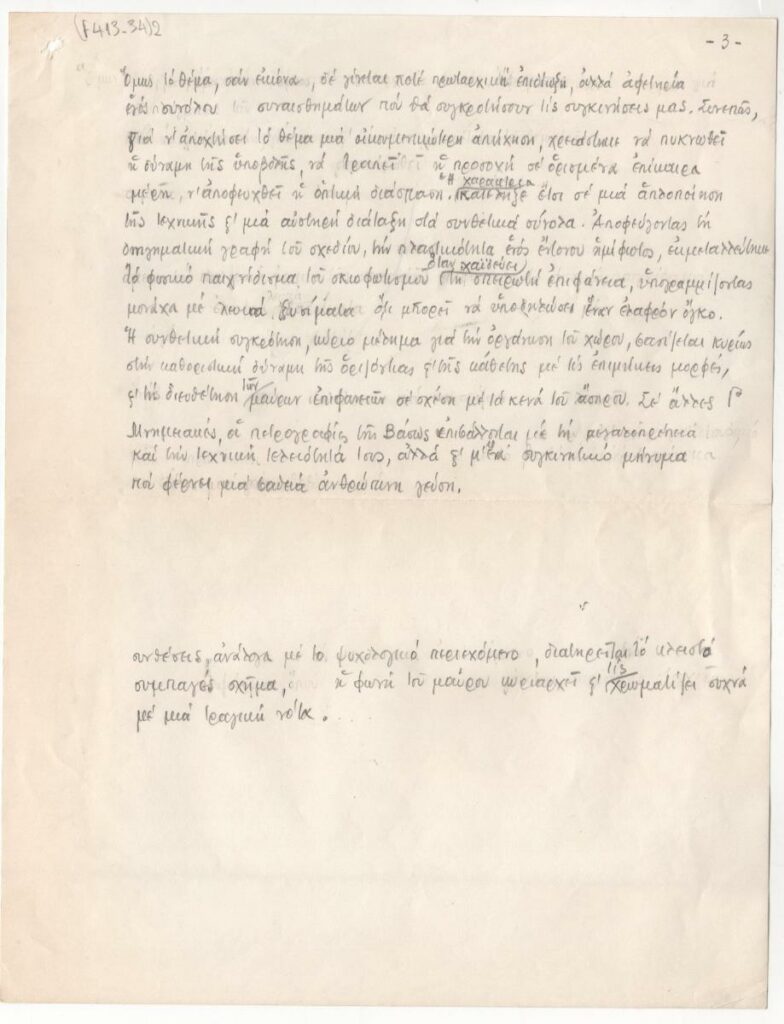 (F413-34)2
- 3 -
Ὅμως τὸ θέμα, σάν εἰκόνα, δέ γίνεται ποτέ πρωταρχική ἐπιδίωξη, ἀλλά ἀφετηρία
ἑνός συνόλου συναισθημάτων πού θά συγκροτήσουν τίς συγκινήσεις μας. Συνεπῶς,
γιά ν' ἀποχτήσει τό θέμα μιά οἰκουμενικώτερη ἀπήχηση, χρειάστηκε νά πυκνωθεῖ
ἡ δύναμη τῆς ὑποβολῆς, νά τραπεῖ ἡ προσοχή σέ ὁρισμένα ἐπίκαιρα
μέρη, ν' ἀποφευχθεῖ ἡ ὀπτική διάσπαση. Ἡ χαράκτρια κατέληξε ἔτσι σέ μιά ἁπλοποίηση
τῆς τεχνικῆς κ' μιά αὐστηρή διάταξη στά συνθετικά σύνολα. Ἀποφεύγοντας τή
διηγηματική γραφή τοῦ σχεδίου, τήν πλαστικότητα ἑνός ἔντονου ἡμίφωτος, ἐκμεταλλεύτηκε
τό φυσικό παιχνίδισμα τοῦ σκιοφωτισμοῦ ὅταν χαϊδεύει τή σπειρωτή ἐπιφάνεια, ὑπογραμμίζοντας
μονάχα μέ λευκά ξυσίματα ὅ,τι μπορεῖ νά ὑποδηλώσει ἕναν ἐλαφρόν ὄγκο.
Ἡ συνθετική συγκρότηση, κύριο μέλημα γιά τήν ὀργάνωση τοῦ χώρου, βασίζεται κυρίως
στήν καθοριστική δύναμη τῆς ὁριζόντιας κ' τῆς κάθετης μέ τίς ἐπιμήκεις μορφές,
κ' τή διευθέτηση τῶν μαύρων ἐπιφανειῶν σέ σχέση μέ τά κενά τοῦ ἄσπρου. Σέ ἄλλες Γ
Μνημειακές, οἱ πετρογραφίες τῆς Βάσως ἐπιβάλλονται μέ τή μεγαλοπρέπεια
καί τήν τεχνική τελειότητά τους, ἀλλά κ' μ' ἕνα συγκινητικό μήνυμα
πού φέρνει μιά βαθειά ἀνθρώπινη γεύση.
συνθέσεις, ἀνάλογα μέ τό ψυχολογικό περιεχόμενο, διατηρεῖται τό κλειστό
συμπαγές σχῆμα, ἡ φωνή τοῦ μαύρου κυριαρχεῖ κ' τίς χρωματίζει συχνά
μέ μιά τραγική νότα.